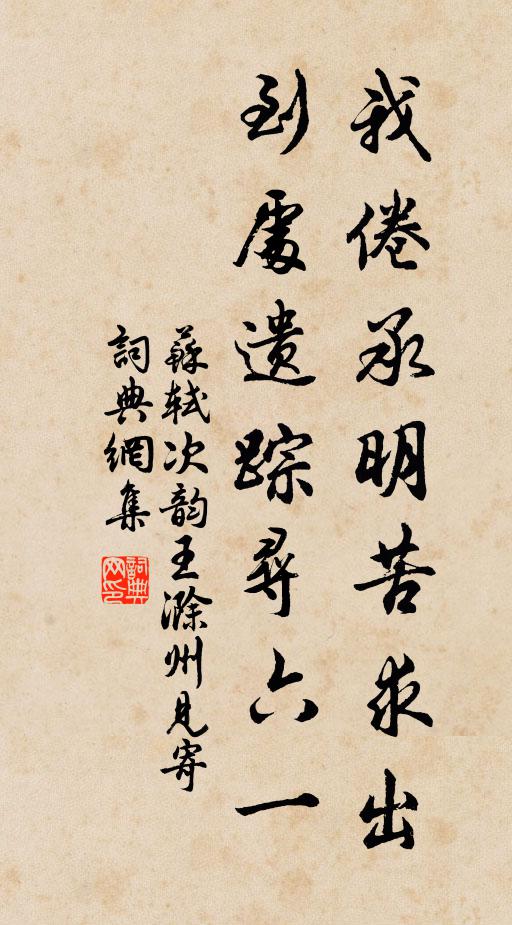 我倦承明苦求出
到處遺踪尋六一
蘇軾次韵王滁州見寄
詞典網集
詞典网印